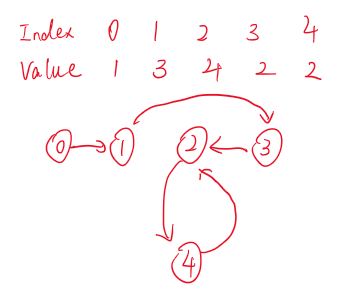 Index 0 1 2 3 4
Value 1 3 4 2 2
0 1 2 3
4